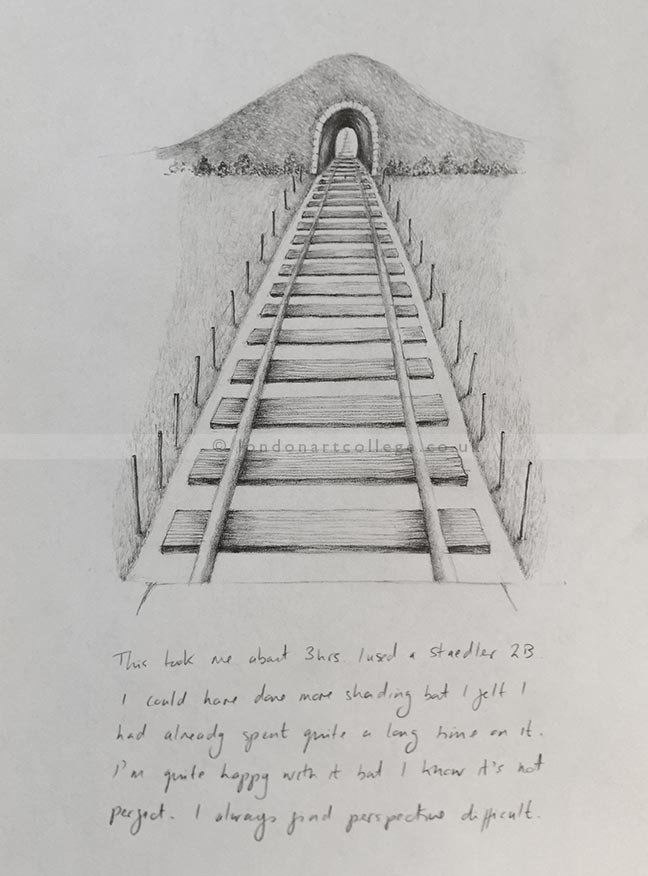 © londonartcollege.co.u
This took me about 3hrs. I used a Staedler 2B.
I could have done more shading but I felt I
had already spent quite a long time on it.
I'm quite happy with it but I know it's not
perfect. I always find perspective difficult.